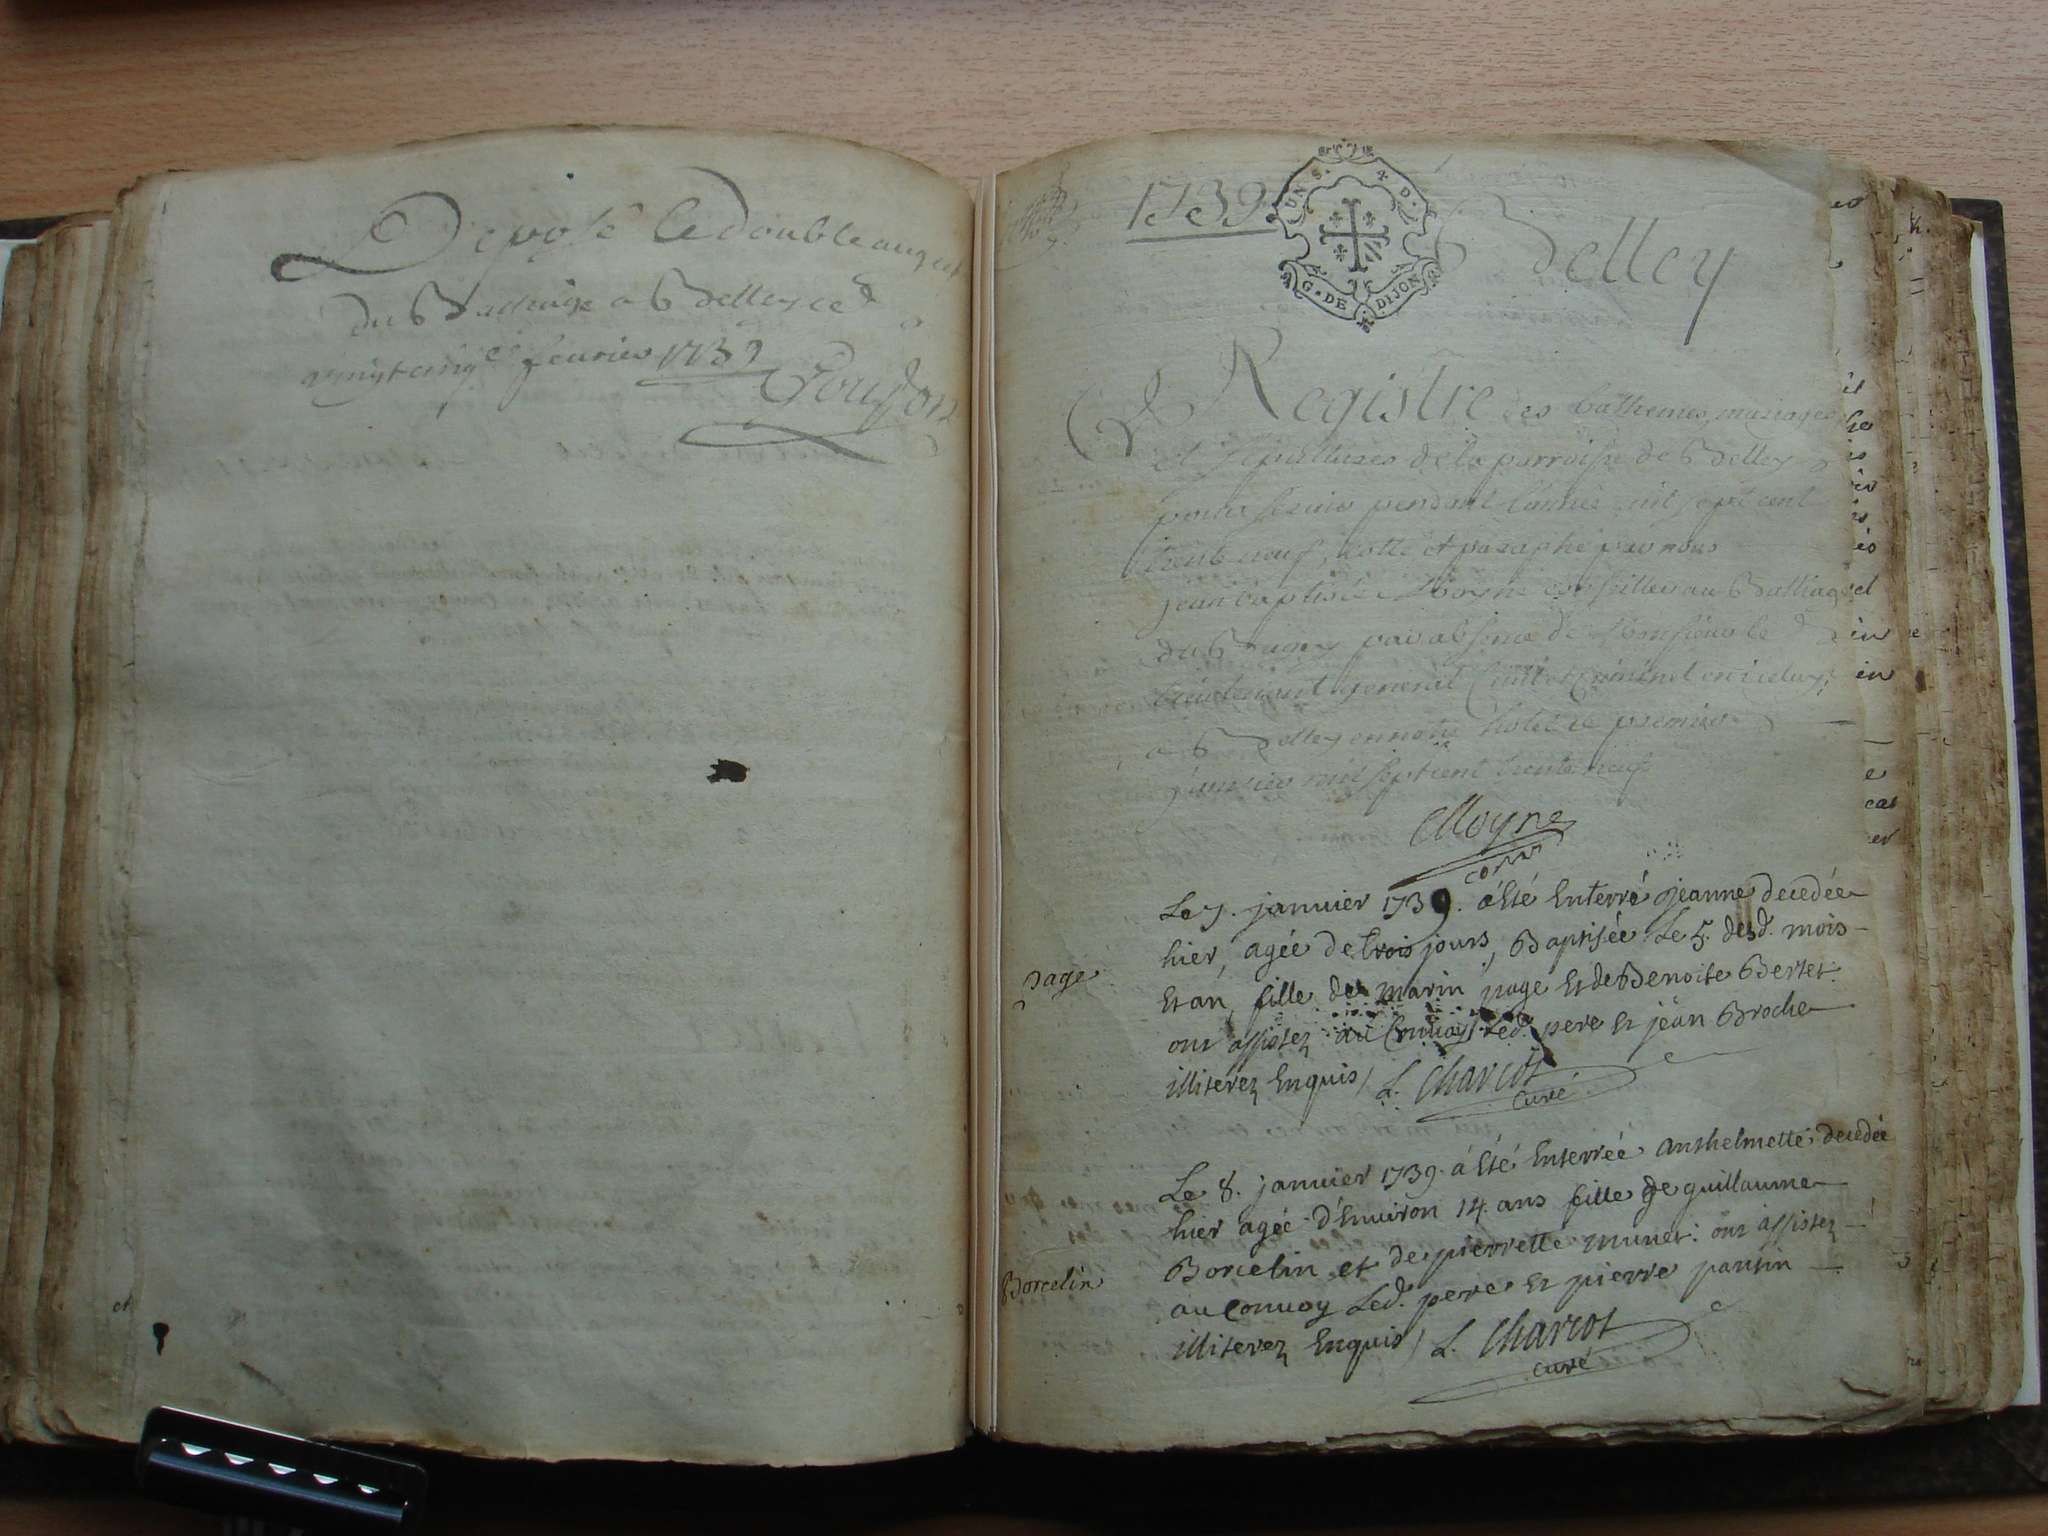 Deposé le double au greffe
du Bailliage a Belley ce
vingt cinq fevrier 1739
1739
UN S. D.
G. DE DIJON
Belley
Registre des bathemes, mariages
et sepultures de la parroisse de Belley
pour servir pendant l'année mil sept cent
trente neuf, cotté et paraphé par nous
jean baptiste Moyne conseiller au Balliage
du Bugey par absence de Monsieur le
lieutenant general Civil et Criminel en iceluy,
a Belley en notre hotel ce premier
janvier mil sept cent trente neuf
Moyne
Le 7. janvier 1739. á Eté Enterré jeanne decedée
hier, agée de trois jours, Baptisée Le 5. desd. mois
Page
Et an, fille de marin page Et de Benoite Bertet
ont assistez au Convoy Led. pere Et jean Broche
illiterez Enquis / L. Charcot
Curé
Le 8. janvier 1739. á Eté Enterrée anthelmette decedée
hier agée d'Environ 14. ans fille de guillaume
Borcelin
Borcelin et de pierrette munet: ont assistez
au Convoy Led. pere Et pierre pantin
illiterez Enquis / L. Charcot
curé